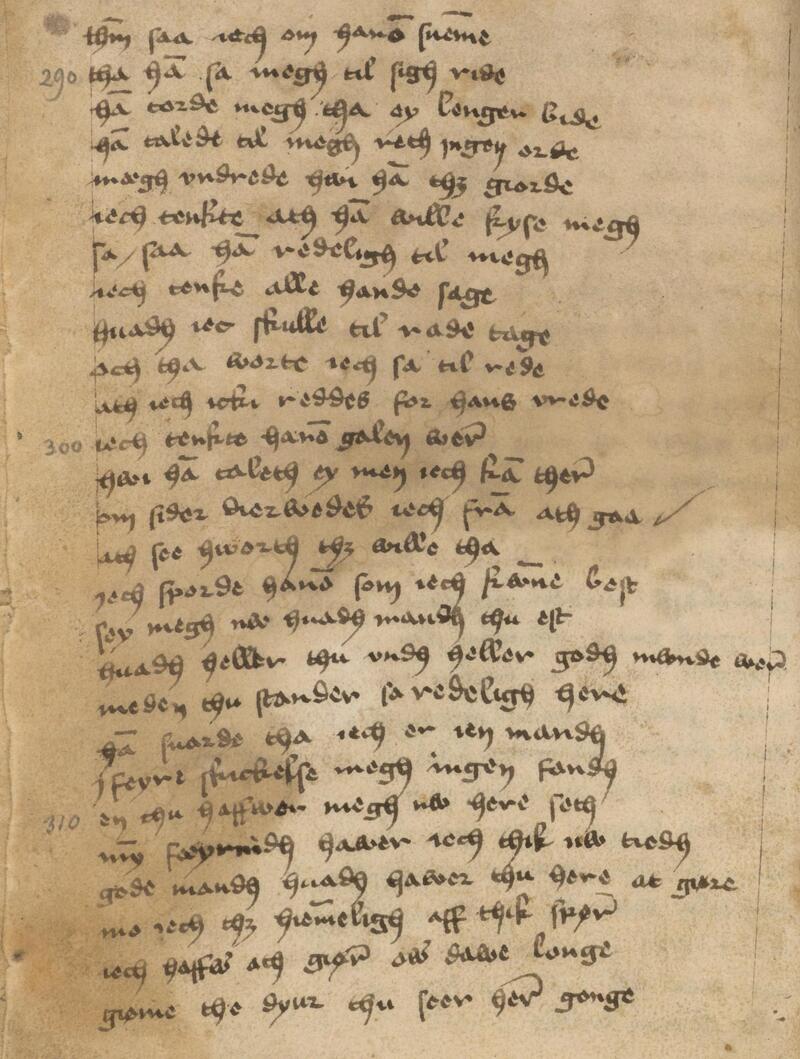 thm̄ saa iech om hanō suem̄e
290 tha hā sa megh til sigh ride
hā torde megh tha ey lenger bide
hā talede til megh reth ingen orde
megh vndrede hwi hā thꝫ giorde
iech tenkte ath hā wille kyse megh
sa / saa hā redeligh til megh
iech tenke alle hande sage
huadh iec skulle til rade tage
och tha worte iech sa til rede
ath iech icki reddes for hans vrede
300 iech tenkte hanō galen wer̄
hwi hā taleth ey men iech kā ther̄
om sider dierwedes iech frā ath gaa /
ath see hworth thꝫ wille tha
iech sporde hanō som iech kwn̄e best
sey megh nw huadh mandh thu est
huadh heller thu vndh heller godh mwnde wer̄
meden thu stander sa redeligh here
hā suarde tha iech er ien mandh
i feyre skickelse megh ingen fandh
310 en thu haffwer megh nw here seth
my̅ hawer iech thik nw tiedh
gode mandh huadh hawer thu here at giøre
mo iech thꝫ hiem̄eligh aff thik spør̄
iech haffw̄ ath giør̄ ow̄ dawe longe
giøme the dyur thu seer her̄ genge